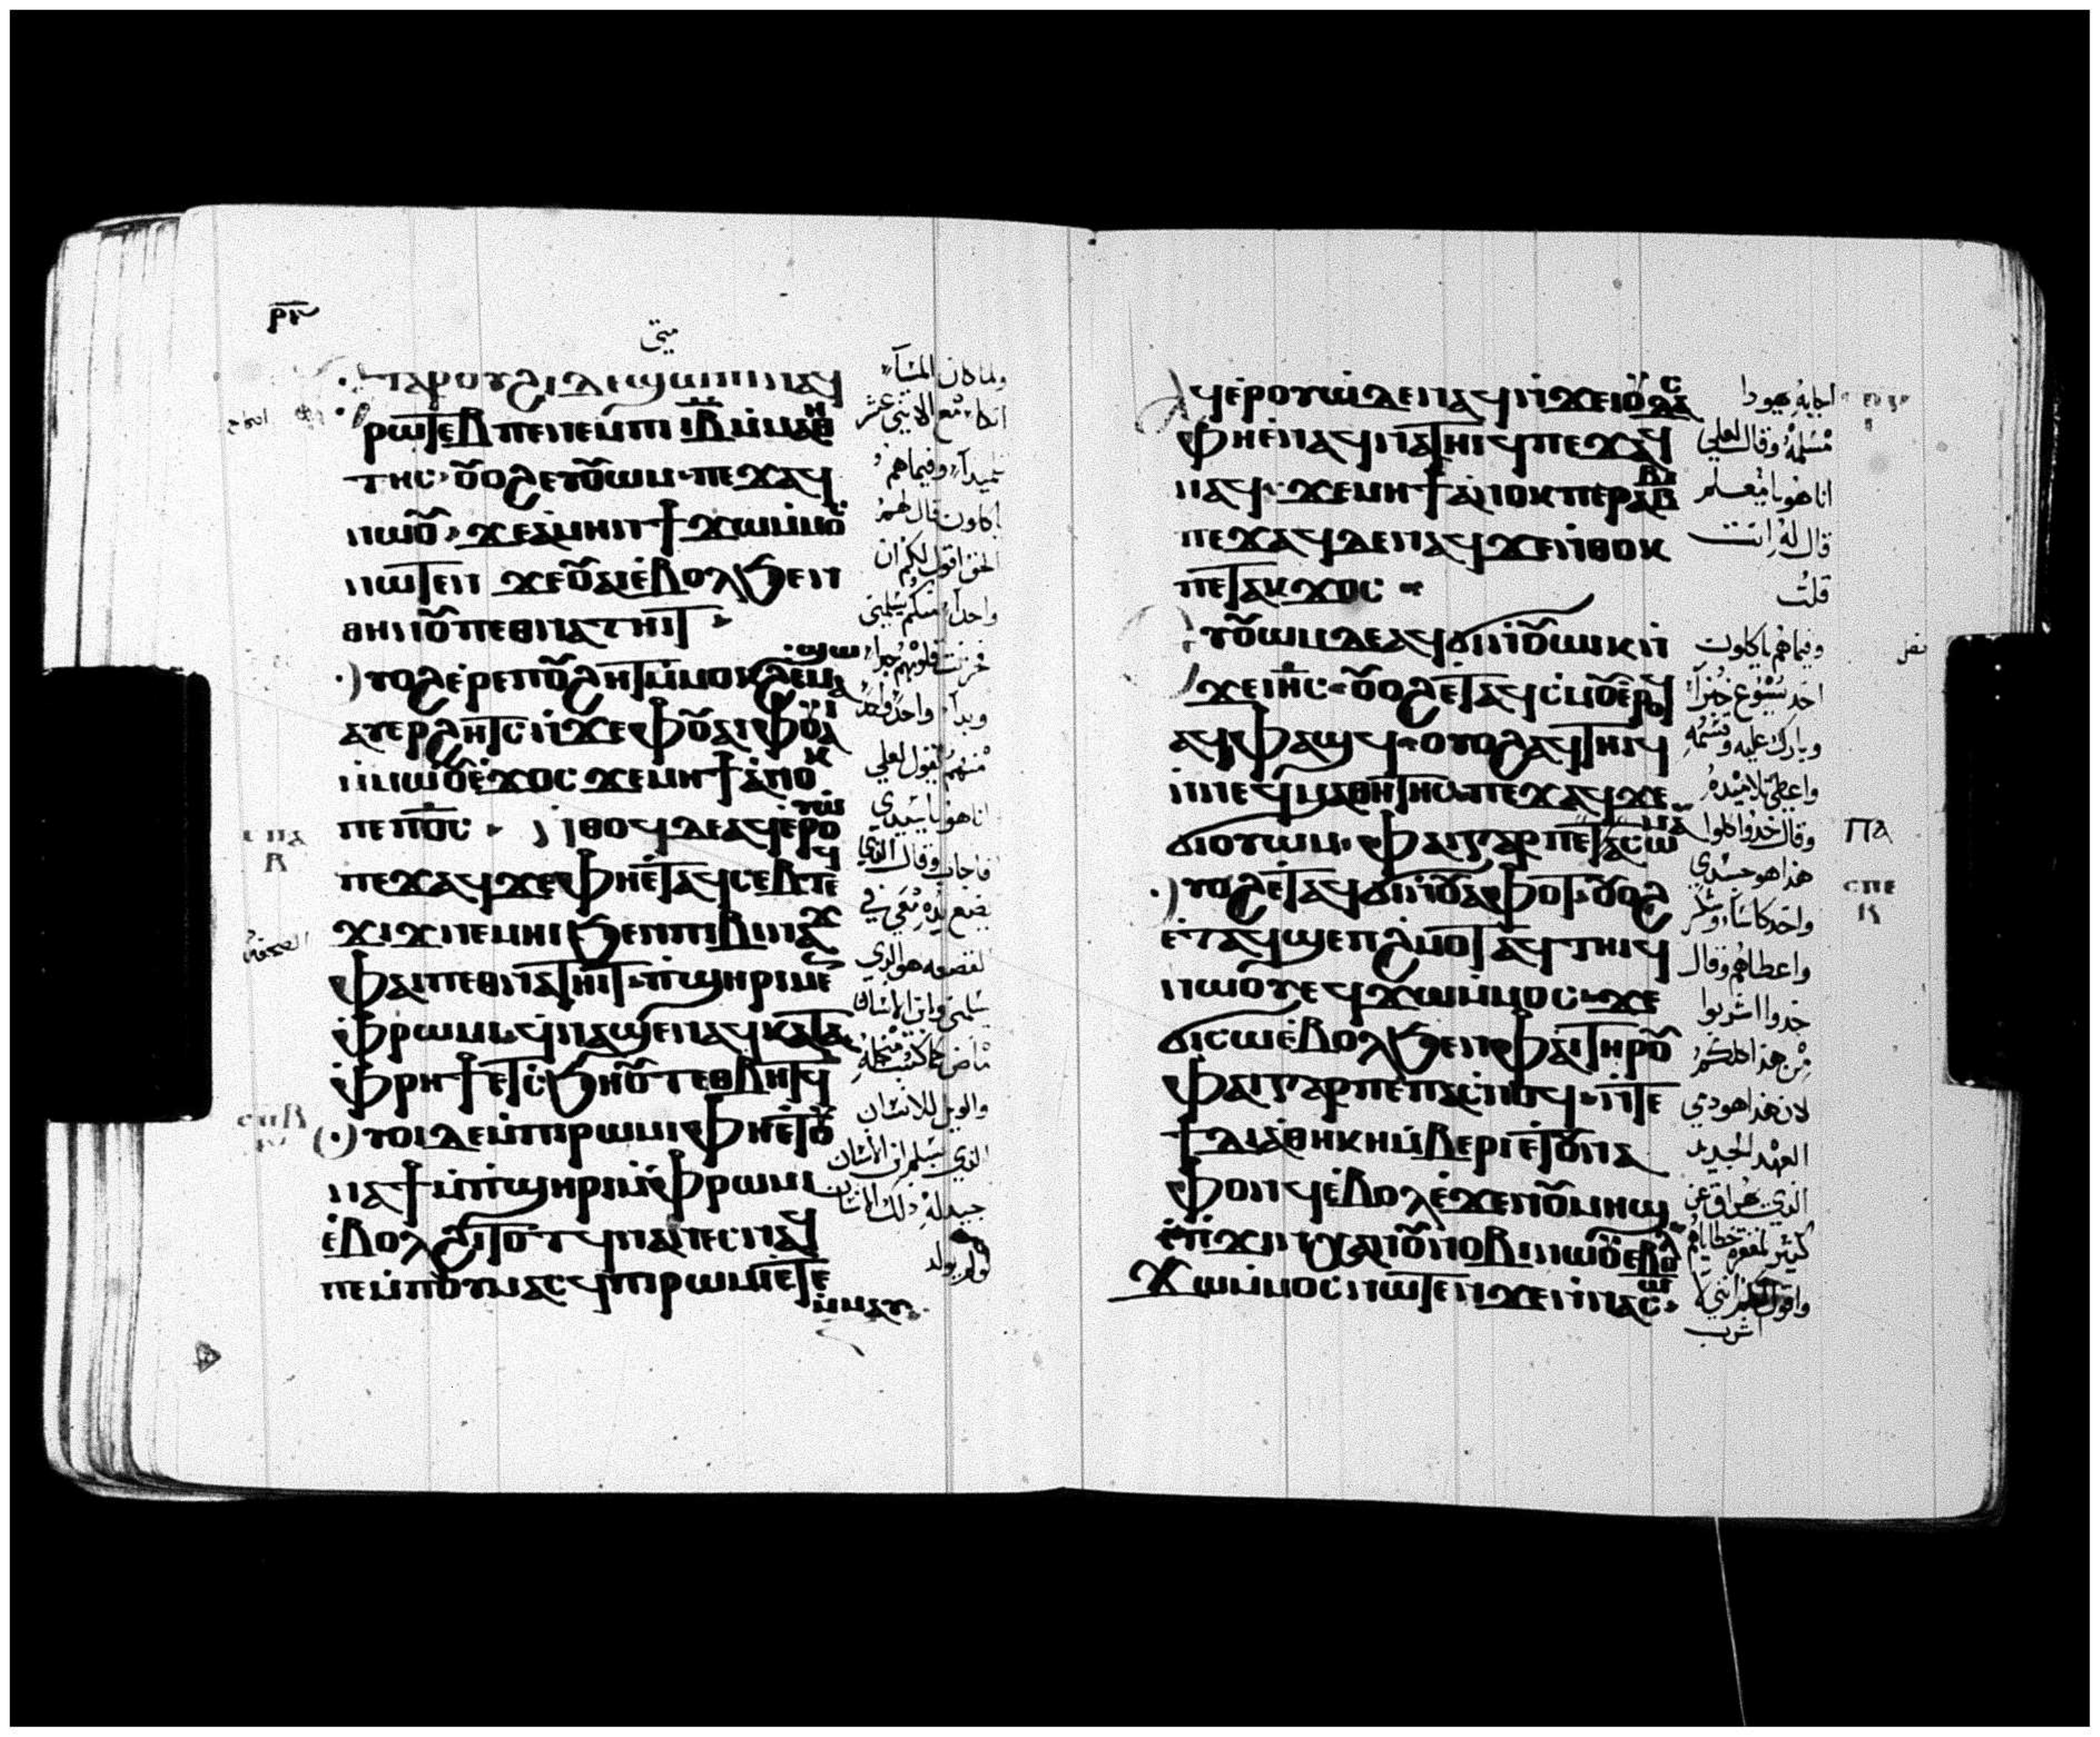 ⲣⲅ
متى
ⲧⲁⲣⲟⲩϩⲓ ⲇⲉ ϣⲱⲡⲓ ⲛⲁϥ
ⲣⲱⲧⲉⲃ ⲡⲉ ⲛⲉⲙ ⲡⲓ ⲓⲃ ⲙⲙⲁⲑⲏ
ⲧⲏⲥ ⲟⲩⲟϩ ⲉⲩⲟⲩⲱⲙ ⲡⲉϫⲁϥ
ⲛⲱⲟⲩ ϫⲉ ⲁⲙⲏⲛ ϯϫⲱ ⲙⲙⲟⲥ
ⲛⲱⲧⲉⲛ ϫⲉ ⲟⲩⲁⲓ ⲉⲃⲟⲗ ϧⲉⲛ
ⲑⲏⲛⲟⲩ ⲡⲉⲑⲛⲁⲧⲏⲓⲧ
ⲩⲟϩ ⲉⲣⲉ ⲡⲟⲩϩⲏⲧ ⲙⲟⲕϩ ⲉⲙⲁϣⲱ
ⲁⲩⲉⲣϩⲏⲧⲥ ⲛϫⲉ ⲫⲟⲩⲁⲓ ⲫⲟⲩⲁⲓ
ⲙⲙⲱⲟⲩ ⲉϫⲟⲥ ϫⲉ ⲙⲏϯ ⲁⲛⲟⲕ
ⲡⲉ ⲡⲟⲥ ⲛⲑⲟϥ ⲇⲉ ⲁϥⲉⲣⲟⲩⲱ
ⲡⲉϫⲁϥ ϫⲉ ⲫⲏⲉⲧⲁϥⲥⲉⲃⲧⲉ
ϫⲓϫ ⲛⲉⲙⲏⲓ ϧⲉⲛ ⲡⲓⲃⲓⲛⲁϫ
ⲫⲁⲓ ⲡⲉⲑⲛⲁⲧⲏⲓⲧ ⲡϣⲏⲣⲓ ⲙⲉⲛ
ⲙⲫⲣⲱⲙⲓ ϥⲛⲁϣⲉⲛⲁϥ ⲕⲁⲧⲁ
ⲫⲣⲏϯ ⲉⲧⲥϧⲏⲟⲩⲧ ⲉⲑⲃⲏⲧϥ
ⲩⲟⲓ ⲇⲉ ⲙⲡⲓⲣⲱⲙⲓ ⲫⲏⲉⲧⲟⲩ
ⲛⲁϯ ⲙⲡϣⲏⲣⲓ ⲙⲫⲣⲱⲙⲓ
ⲉⲃⲟⲗϩⲓⲧⲟⲧϥ ⲛⲁⲛⲉⲥ ⲛⲁϥ
ⲡⲉ ⲙⲡⲟⲩⲙⲁⲥϥ ⲡⲓⲣⲱⲙⲓ ⲉⲧⲉ
ⲙⲙⲁⲩ
ولما كان المساء
اتكا مع الاثني عشر
تلميدا وفيما هم
ياكلون قال لهم
الحق اقول لكم ان
واحدا منكم يسلمني
فحزنت قلوبهم جدا
وبدا واحد واحد
منهم يقول لعلي
انا هو يا سيدي
فاجاب وقال الذي
يضع يده معي في
هو الذي
يسلمني وابن الانسان
ماض كما كتب
والويل للانسان
الذي يسلم ابن الانسان
لو لم يولد
ⲥⲡⲁ
ⲥⲡⲃ
ⲁϥⲉⲣⲟⲩⲱ ⲇⲉ ⲛⲁϥ ⲛϫⲉ ⲓⲟⲩⲇⲁⲥ
ⲫⲏⲉⲛⲁϥⲛⲁⲧⲏⲓϥ ⲡⲉϫⲁϥ
ⲛⲁϥ ϫⲉ ⲙⲏϯ ⲁⲛⲟⲕ ⲡⲉ ⲣⲁⲃⲃⲓ
ⲡⲉϫⲁϥ ⲇⲉ ⲛⲁϥ ϫⲉ ⲛⲑⲟⲕ
ⲡⲉⲧⲁⲕϫⲟⲥ
ⲩⲟⲩⲱⲙ ⲇⲉ ⲁϥϭⲓ ⲛⲟⲩⲱⲓⲕ ⲛ
ϫⲉ ⲓⲏⲥ ⲟⲩⲟϩ ⲉⲧⲁϥⲥⲙⲟⲩ ⲉⲣⲟϥ
ⲁϥⲫⲁϣϥ ⲟⲩⲟϩ ⲁϥⲧⲏⲓϥ
ⲛⲛⲉϥⲙⲁⲑⲏⲧⲏⲥ ⲡⲉϫⲁϥ ϫⲉ
ϭⲓ ⲟⲩⲱⲙ ⲫⲁⲓ ⲅⲁⲣ ⲡⲉ ⲡⲁⲥⲱⲙⲁ
ⲩⲟϩ ⲉⲧⲁϥϭⲓ ⲛⲟⲩⲁⲫⲟⲧ ⲟⲩⲟϩ
ⲉⲧⲁϥϣⲉⲡϩⲙⲟⲧ ⲁϥⲧⲏⲓϥ
ⲛⲱⲟⲩ ⲉϥϫⲱ ⲙⲙⲟⲥ ϫⲉ
ϭⲓ ⲥⲱ ⲉⲃⲟⲗ ϧⲉⲛ ⲫⲁⲓ ⲧⲏⲣⲟⲩ
ⲫⲁⲓ ⲅⲁⲣ ⲡⲉ ⲡⲁⲥⲛⲟϥ ⲛⲧⲉ
ϯⲇⲓⲁⲑⲏⲕⲏ ⲙⲃⲉⲣⲓ ⲉⲧⲟⲩⲛⲁ
ⲫⲟⲛϥ ⲉⲃⲟⲗ ⲉϫⲉⲛ ⲟⲩⲙⲏϣ
ⲉⲡϫⲓⲛⲭⲁ ⲛⲟⲩⲛⲟⲃⲓ ⲛⲱⲟⲩ ⲉⲃⲟⲗ
ϫⲱ ⲙⲙⲟⲥ ⲛⲱⲧⲉⲛ ϫⲉ ⲛⲛⲁⲥⲱ
اجابه يهودا
مسلمه وقال لعلي
انا هو يا معلم
قال له انت
قلت
وفيما هم ياكلون
اخد يسوع خبزا
وبارك عليه وقسمه
واعطى تلاميده
وقال خدوا كلوا
هذا هو جسدي
واخد كاسا وشكر
واعطاهم وقال
خدوا اشربوا
من هذا كلكم
لان هذا هو دمي
العهد الجديد
الذي يهراق عن
كثير لمغفرة خطاياهم
واقول لكم انني لا
اشرب
ⲡⲁ
ⲥⲡⲉ